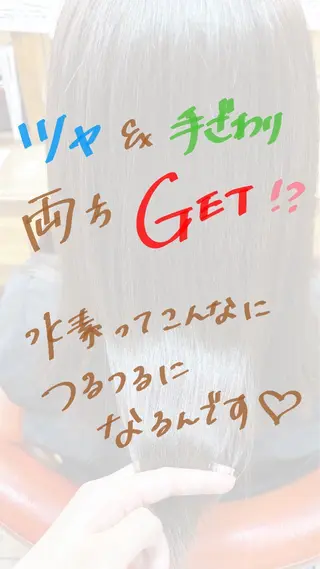 ツヤ & 手ざわり
両方 GET!?
水素ってこんなに
つるつるに
なるんです♡